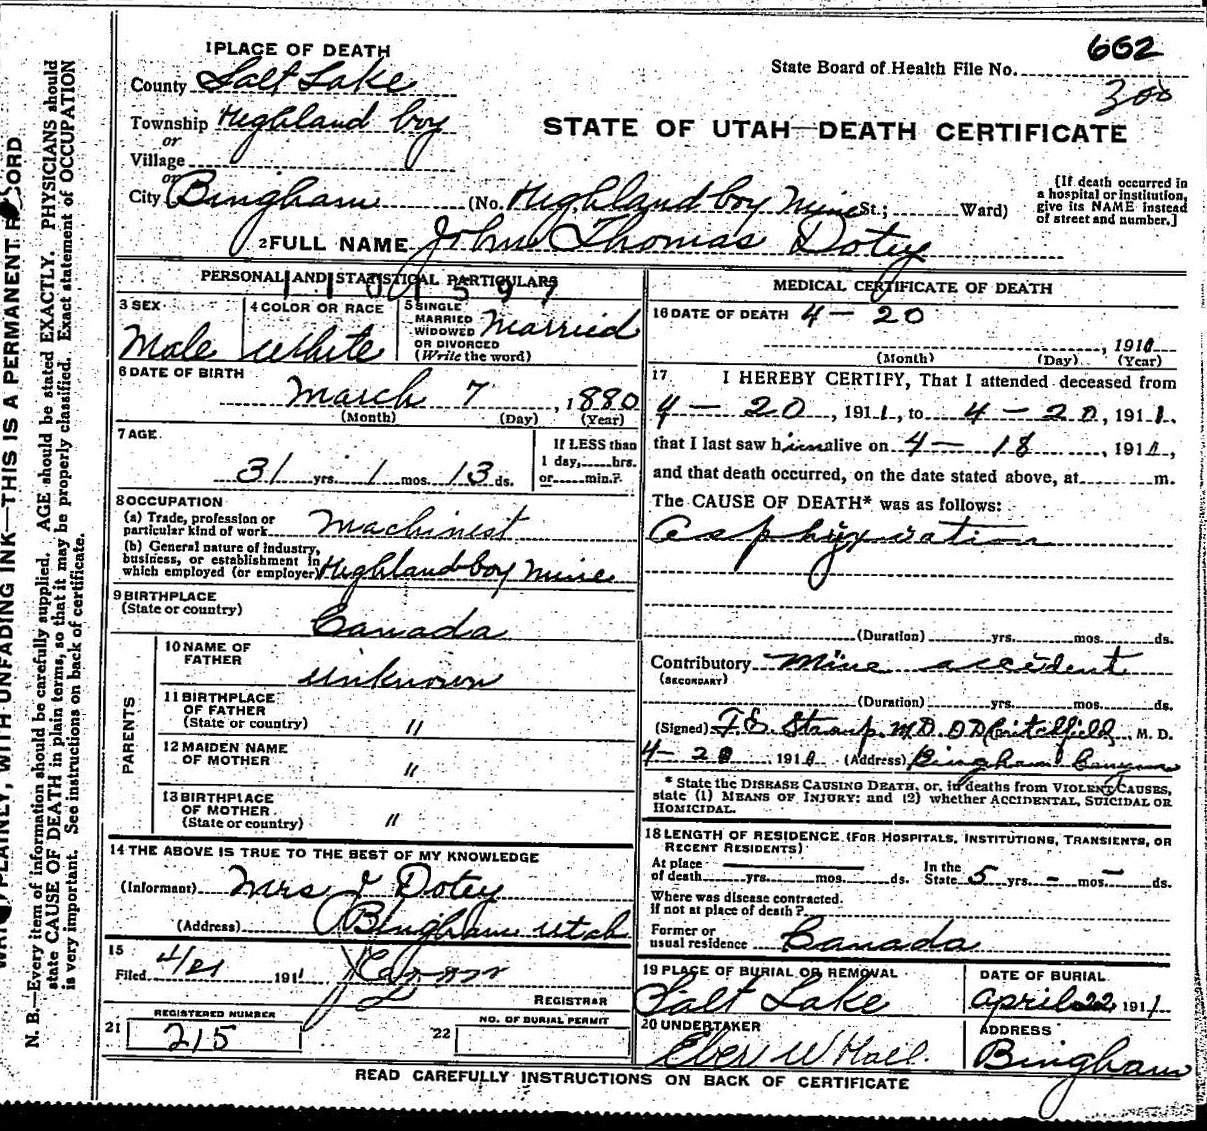 1 PLACE OF DEATH
County Salt Lake
Township Highland boy
or
Village
or
City Bingham (No. Highland boy Mine St.; Ward)
State Board of Health File No. 662
300
STATE OF UTAH—DEATH CERTIFICATE
[If death occurred in a hospital or institution, give its NAME instead of street and number.]
2 FULL NAME John Thomas Dotey
PERSONAL AND STATISTICAL PARTICULARS
3 SEX Male
4 COLOR OR RACE White
5 SINGLE MARRIED WIDOWED OR DIVORCED (Write the word) Married
6 DATE OF BIRTH
March 7, 1880
(Month) (Day) (Year)
7 AGE
31 yrs. 1 mos. 13 ds.
If LESS than 1 day, hrs. or min.?
8 OCCUPATION
(a) Trade, profession or particular kind of work Machinest
(b) General nature of industry, business, or establishment in which employed (or employer) Highland boy mine
9 BIRTHPLACE
(State or country) Canada
PARENTS
10 NAME OF FATHER unknown
11 BIRTHPLACE OF FATHER (State or country) "
12 MAIDEN NAME OF MOTHER "
13 BIRTHPLACE OF MOTHER (State or country) "
14 THE ABOVE IS TRUE TO THE BEST OF MY KNOWLEDGE
(Informant) Mrs J Dotey
(Address) Bingham Utah
15
Filed 4/21 1911
REGISTRAR
21 REGISTERED NUMBER 215
22 NO. OF BURIAL PERMIT
MEDICAL CERTIFICATE OF DEATH
16 DATE OF DEATH 4 — 20, 1911
(Month) (Day) (Year)
17 I HEREBY CERTIFY, That I attended deceased from
4 — 20, 1911, to 4 — 20, 1911.
that I last saw him alive on 4 — 18, 1911,
and that death occurred, on the date stated above, at m.
The CAUSE OF DEATH* was as follows:
Asphyxiation
(Duration) yrs. mos. ds.
Contributory Mine accident
(SECONDARY)
(Duration) yrs. mos. ds.
(Signed) F.E. Straup M.D. Critchfield M. D.
4 — 20 1911 (Address) Bingham Canyon
* State the DISEASE CAUSING DEATH, or, in deaths from VIOLENT CAUSES, state (1) MEANS OF INJURY; and (2) whether ACCIDENTAL, SUICIDAL OR HOMICIDAL.
18 LENGTH OF RESIDENCE (FOR HOSPITALS, INSTITUTIONS, TRANSIENTS, OR RECENT RESIDENTS)
At place of death yrs. mos. ds. In the State 5 yrs. - mos. - ds.
Where was disease contracted, if not at place of death?
Former or usual residence Canada
19 PLACE OF BURIAL OR REMOVAL Salt Lake
DATE OF BURIAL April 22, 1911
20 UNDERTAKER Eber W Hall.
ADDRESS Bingham
READ CAREFULLY INSTRUCTIONS ON BACK OF CERTIFICATE
PLAINLY, WITH UNFADING INK—THIS IS A PERMANENT RECORD
N. B.—Every item of information should be carefully supplied. AGE should be stated EXACTLY. PHYSICIANS should
state CAUSE OF DEATH in plain terms, so that it may be properly classified. Exact statement of OCCUPATION
is very important. See instructions on back of certificate.